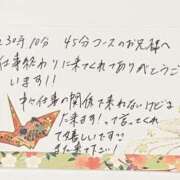 30分10分 45分コースのお兄様へ
仕事終わりに来てくれてありがとうご
います!!
中々仕事の関係で来れないけどま
た来ます!って言ってくれ
て嬉しいです♡
また来て下さい!